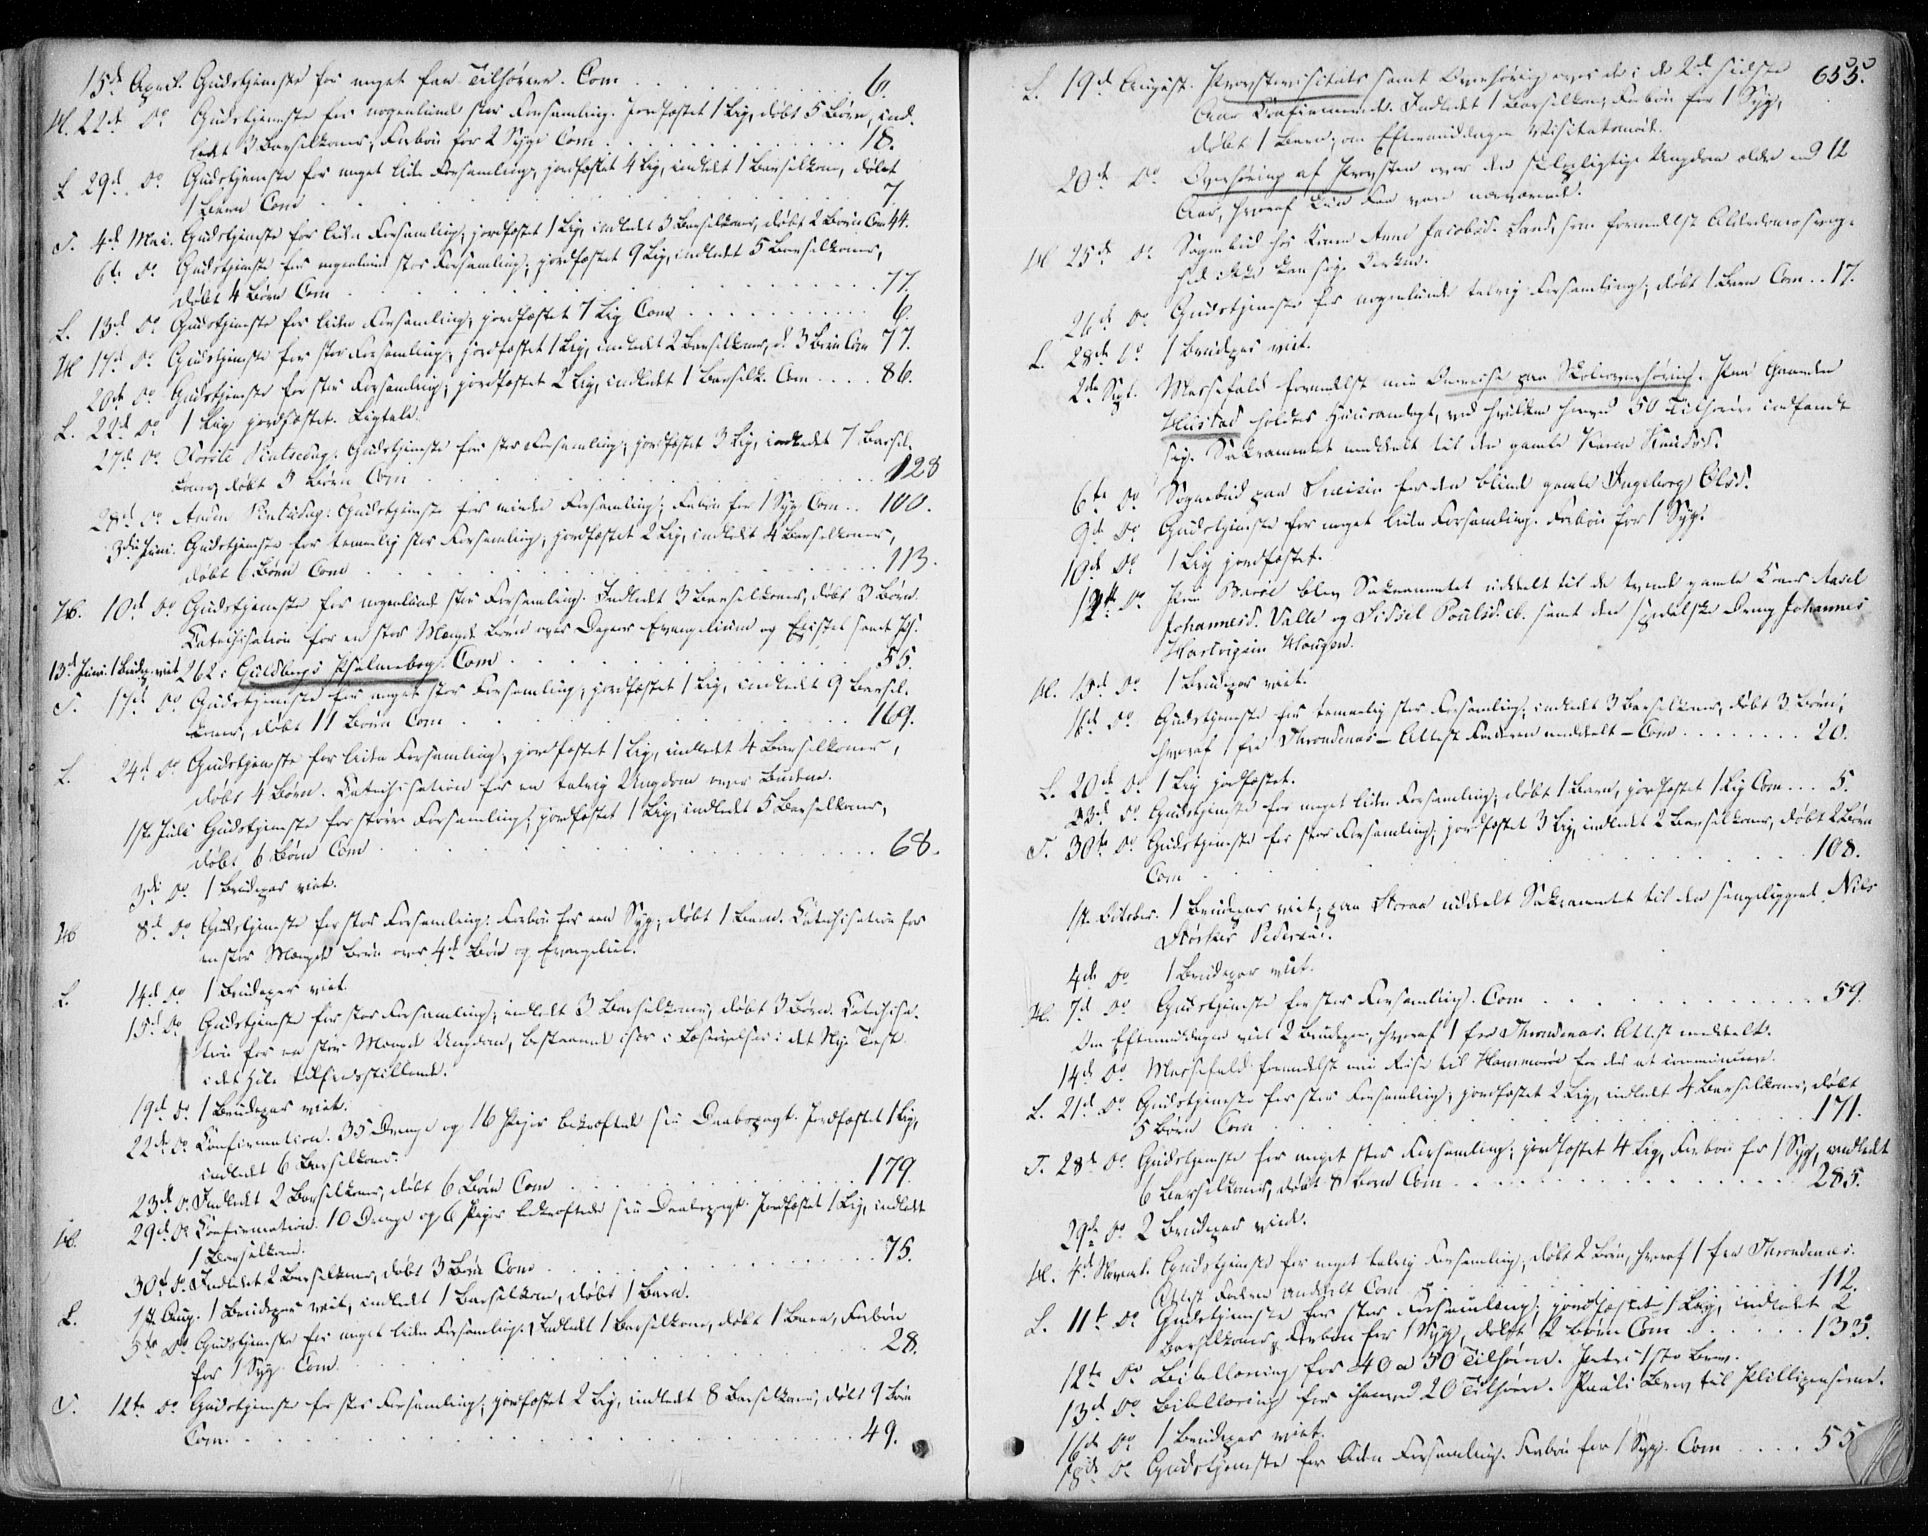 15de April. Gudstjeneste for meget faa Tilhørere. Com . . . 6.
H. 22de Do Gudstjeneste for nogenlunde stor Forsamling. Jordfæstet 1 Lig, døbt 5 Børn, ind-
ledt 3 Barselkoner; Forbøn for 2 Syge Com . . . 18.
L. 29de Do Gudstjeneste for meget liden Forsamling, jordfæstet 4 Lig, indledt 1 Barselkone, døbt
1 Barn Com . . . 7.
T. 4de Mai. Gudstjeneste for liden Forsamling; jordfæstet 1 Lig, indledt 3 Barselkoner, døbt 2 Børn Com 44.
6te Do Gudstjeneste for nogenlunde stor Forsamling; jordfæstet 9 Lig, indledt 5 Barselkoner,
døbt 4 Børn Com . . . 77.
L. 13de Do Gudstjeneste for liden Forsamling; jordfæstet 7 Lig Com . . . 6.
H. 17de Do Gudstjeneste for stor Forsamling; jordfæstet 1 Lig, indledt 2 Barselkoner, d. 3 Børn Com 77.
20de Do Gudstjeneste for stor Forsamling; jordfæstet 2 Lig, indledt 1 Barselk. Com . . . 86.
L. 22de Do 1 Lig jordfæstet. Ligtale.
27de Do Første Pintsedag: Gudstjeneste for stor Forsamling; jordfæstet 3 Lig, indledt 7 Barsel-
koner, døbt 5 Børn Com . . . 128
28de Do Anden Pintsedag: Gudstjeneste for mindre Forsamling; Forbøn for 1 Syg Com . . 100.
3die Juni. Gudstjeneste for temmelig stor Forsamling; jordfæstet 2 Lig, indledt 4 Barselkoner,
døbt 6 Børn Com . . . 113.
H. 10de Do Gudstjeneste for nogenlunde stor Forsamling. Indledt 3 Barselkoner, døbt 3 Børn.
Catechisation for en stor Mængde Børn over Dagens Evangelium og Epistel samt Ps.
13de Juni. 1 Brudep. viet 262 i Guldbergs Psalmebog. Com . . . 55.
T. 17de Do Gudstjeneste for meget stor Forsamling; jordfæstet 1 Lig, indledt 9 Barsel-
koner, døbt 11 Børn Com . . . 169.
L. 24de Do Gudstjeneste for liden Forsamling, jordfæstet 1 Lig, indledt 4 Barselkoner,
døbt 4 Børn. Catechisation for en talrig Ungdom over Budene.
1ste Juli Gudstjeneste for større Forsamling; jordfæstet 1 Lig, indledt 5 Barselkoner,
døbt 6 Børn Com . . . 68.
3die Do 1 Brudepar viet.
H 8de Do Gudstjeneste for stor Forsamling: Forbøn for een Syg; døbt 1 Barn. Catechisation for
en stor Mængde Børn over 4de Bøn og Evangeliet.
L. 14de Do 1 Brudepar viet.
15de Do Gudstjeneste for stor Forsamling; indledt 3 Barselkoner, døbt 3 Børn. Catechisa-
tion for en stor Mængde Ungdom, bestaaende især i Læseøvelser i det Nye Test.
i det Hele tilfredsstillende.
19de Do 1 Brudepar viet.
22de Do Confirmation. 35 Drenge og 16 Piger bekræftede sin Daabspagt. Jordfæstet 1 Lig,
indledt 6 Barselkoner.
23de Do Indledt 2 Barselkoner, døbt 6 Børn Com . . . 179.
H. 29de Do Confirmation. 10 Drenge og 6 Piger bekræftede sin Daabspagt. Jordfæstet 1 Lig, indledt
1 Barselkone.
30te Do Indledt 2 Barselkoner, døbt 3 Børn Com . . . 75.
L. 1ste Aug. 1 Brudepar viet, indledt 1 Barselkone, døbt 1 Barn.
5te Do Gudstjeneste for meget liden Forsamling. Indledt 1 Barselkone, døbt 1 Barn, Forbøn
for 1 Syg. Com . . . 28.
T. 12te Do Gudstjeneste for stor Forsamling; jordfæstet 2 Lig, indledt 8 Barselkoner, døbt 9 Børn
Com . . . 49.
655.
L. 19de August. Provstevisitats samt Overhøring over de i de 2de sidste
Aar Confirmerede. Indledt 1 Barselkone; Forbøn for 1 Syg,
døbt 1 Barn; om Eftermiddagen Visitatsmøde.
20de Do Overhøring af Provsten over den skolepligtige Ungdom ældre end 12
Aar, hvoraf kun Faa vare nærværende.
H 25de Do Sognebud hos Konen Anne Jacobsd. Sand, som formedelst Alderdomssvag-
hed ikke kan søge Kirken.
26de Do Gudstjeneste for nogenlunde talrig Forsamling; døbt 1 Barn Com . . 17.
L. 28de Do 1 Brudepar viet.
2de Sept. Messefald formedelst min Omreise paa Skoleoverhøring. Paa Gaarden
Husstad holdtes Huusandagt, ved hvilken henved 50 Tilhørere indfandt
sig. Sakramentet meddelt til den gamle Karen Knudsd.
6te Do Sognebud paa for den blinde gamle Ingeborg Olsd.
9de Do Gudstjeneste for meget liden Forsamling. Forbøn for 1 Syg.
10de Do 1 Lig jordfæstet.
12te Do Paa blev Sakramentet uddelt til de tvende gamle Koner Aasel
Johannesd. Valle og Sidsel Poulsd. ib. samt den spedalske Dreng Johannes
Hartvigsen Haugen.
H. 15de Do 1 Brudepar viet.
16de Do Gudstjeneste for temmelig stor Forsamling; indledt 3 Barselkoner, døbt 3 Børn;
hvoraf 1 fra Throndenæs – Attest Faderen meddelt – Com . . . 20.
L. 20de Do 1 Lig jordfæstet.
23de Do Gudstjeneste for meget liden Forsamling; døbt 1 Barn, jordfæstet 1 Lig Com . . . 5.
T. 30te Do Gudstjeneste for stor Forsamling; jordfæstet 3 Lig, indledt 2 Barselkoner, døbt 2 Børn
Com . . . 108.
1ste October. 1 Brudepar viet; paa uddelt Sakramentet til den sengeliggende Niels
Størker Pedersen.
4de Do 1 Brudepar viet.
H. 7de Do Gudstjeneste for stor Forsamling. Com . . . 59.
Om Eftermiddagen viet 2 Brudepar, hvoraf 1 fra Throndenæs. Attest meddelt.
14de Do Messefald formedelst min Reise til Hammarøe for der at communicere.
L. 21de Do Gudstjeneste for stor Forsamling; jordfæstet 2 Lig, indledt 4 Barselkoner, døbt
5 Børn Com . . . 171.
T. 28de Do Gudstjeneste for meget stor Forsamling; jordfæstet 4 Lig, Forbøn for 1 Syg, indledt
6 Barselkoner, døbt 8 Børn Com . . . 285.
29de Do 2 Brudepar viede.
H. 4de Novemb. Gudstjeneste for meget talrig Forsamling; døbt 2 Børn, hvoraf 1 fra Throndenæs.
Attest Faderen meddelt Com . . . 112.
L. 11te Do Gudstjeneste for stor Forsamling; jordfæstet 1 Lig, indledt 2
Barselkoner, Forbøn for 1 Syg, døbt 2 Børn Com . . . 133.
12te Do Bibellæsning for 40 a 50 Tilhørere. Petri 1ste Brev.
13de Do Bibellæsning for henved 20 Tilhørere. Pauli Brev til Philippenserne.
16de Do 1 Brudepar viet.
18de Do Gudstjeneste for liden Forsamling. Forbøn for 1 Syg. Com . . . 55